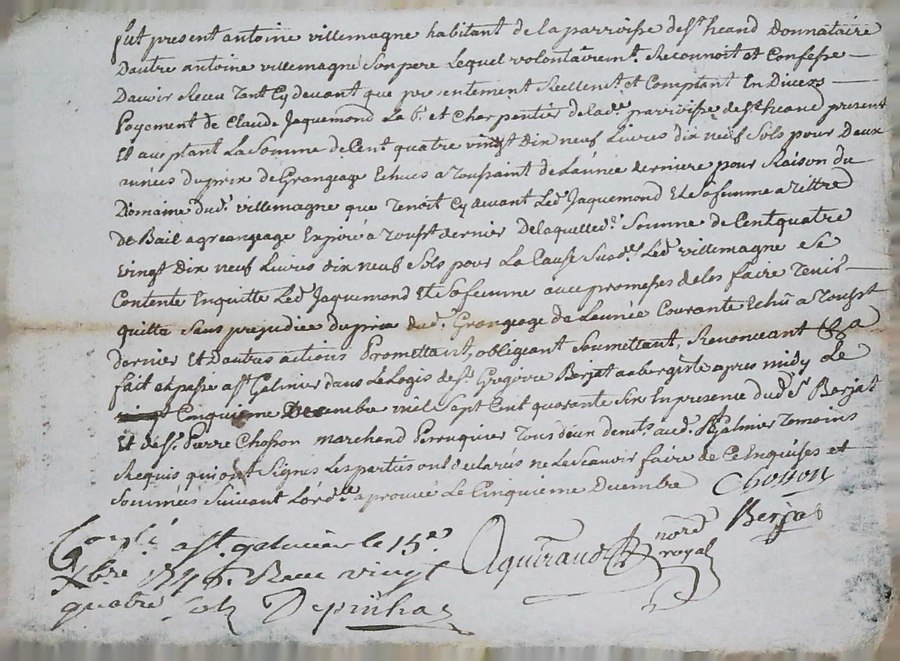 fut present antoine villemagne habitant de la parroisse de st heand Donnataire
Dautre antoine villemagne son pere Lequel volontairemt. Reconnoit et Confesse
Davoir Receu Tant Cy devant que presentement Reellemt. et Comptant En Divers
Payement de Claude Jaquemond La br. et Charpentier de lad.e parroisse de st heand present
Et aceptant La Somme de Cent quatre vingt dix neuf Livres dix neuf Sols pour Deux
années du prix de Grangeage Echues a Toussaint de L'année derniere pour Raison du
Domaine dud. villemagne que Tenoit Cy devant Led. Jaquemond Et Sa femme a Tittre
De Bail a grangeage Expiré a Tousst dernier De laquelle d. Somme de Cent quatre
vingt Dix neuf Livres dix neuf Sols pour La Cause Susd. Led. villemagne se
Contente Enquitte Led. Jaquemond Et Sa femme avec promesse de les faire Tenir
quitte Sans prejudice du prix dud. Grangeage de L'année Courante Echu a Tousst
dernier Et d'autres actions Promettant, obligeant Soumettant, Renonceant &a
fait et passé a st Galmier dans Le Logis de Sr. Gregoire Berjat aubergiste apres midy Le
Cinquieme Decembre mil Sept Cent quarante Six En presence dud. Sr Berjat
Et de Sr. Pierre Chosson marchand Perruquier Tous deux dud. st Galmier Temoins
Requis qui ont Signés Les parties ont declarés ne Le Scavoir faire de Ce Enquises et
Sommées Suivant L'ord.ce aprouvé Le Cinquieme Decembre Chosson
Berjat
notre royal
Conlé a st. galmier le 15e.
Xbre 1746. Receu vingt
quatre sols Depinhac